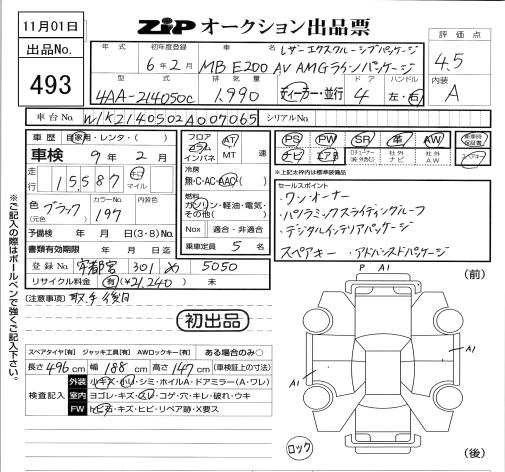 11月01日
ZIP オークション出品票
出品No.
493
年式 初年度登録 車名
6年2月 MB E200 AV AMGラインパッケージ
レザーエクスクルーシブパッケージ
型式 排気量 ドア ハンドル
4AA-214050C 1,990 ディーラー・並行 4 左・右
評価点
4.5
内装
A
車台No. W1K2140502A007065 シリアルNo.
車歴 自家用・レンタ・( )
車検 9年 2月
走行 15,587 キロ マイル
色 (元色) ブラック カラーNo. 197 内装色
予備検 年 月 日(3・8)No.
書類有効期限 年 月 日迄
登録No. 宇都宮 301 め 5050
リサイクル料金 有(¥21,240) 未
フロア コラム インパネ AT MT 速
冷房 無・C・AC・AAC
燃料 ガソリン・軽油・電気・その他( )
Nox 適合・非適合
乗車定員 5 名
PS PW SR 革 AW
ナビ エアB 社外ナビ 社外AW
新車時保証書
スペアキー
※上記太枠内は標準装備
セールスポイント
・ワンオーナー
・パノラミックスライディングルーフ
・デジタルインテリアパッケージ
スペアキー ・アドバンスドパッケージ
[注意事項] 取・手後日
初出品
スペアタイヤ[有] ジャッキ工具[有] AWロックキー[有] ある場合のみ○
長さ 496 cm 幅 188 cm 高さ 147 cm (車検証上の寸法)
検査記入
外装 小キズ・小凹・シミ・ホイルA・ドアミラー(A・ワレ)
室内 ヨゴレ・キズ・スレ・コゲ・穴・キレ・破れ・ウキ
FW トビ石・キズ・ヒビ・リペア跡・X要ス
P A1
(前)
A1
A1
ロック
(後)
※ご記入の際はボールペンで強くご記入下さい。